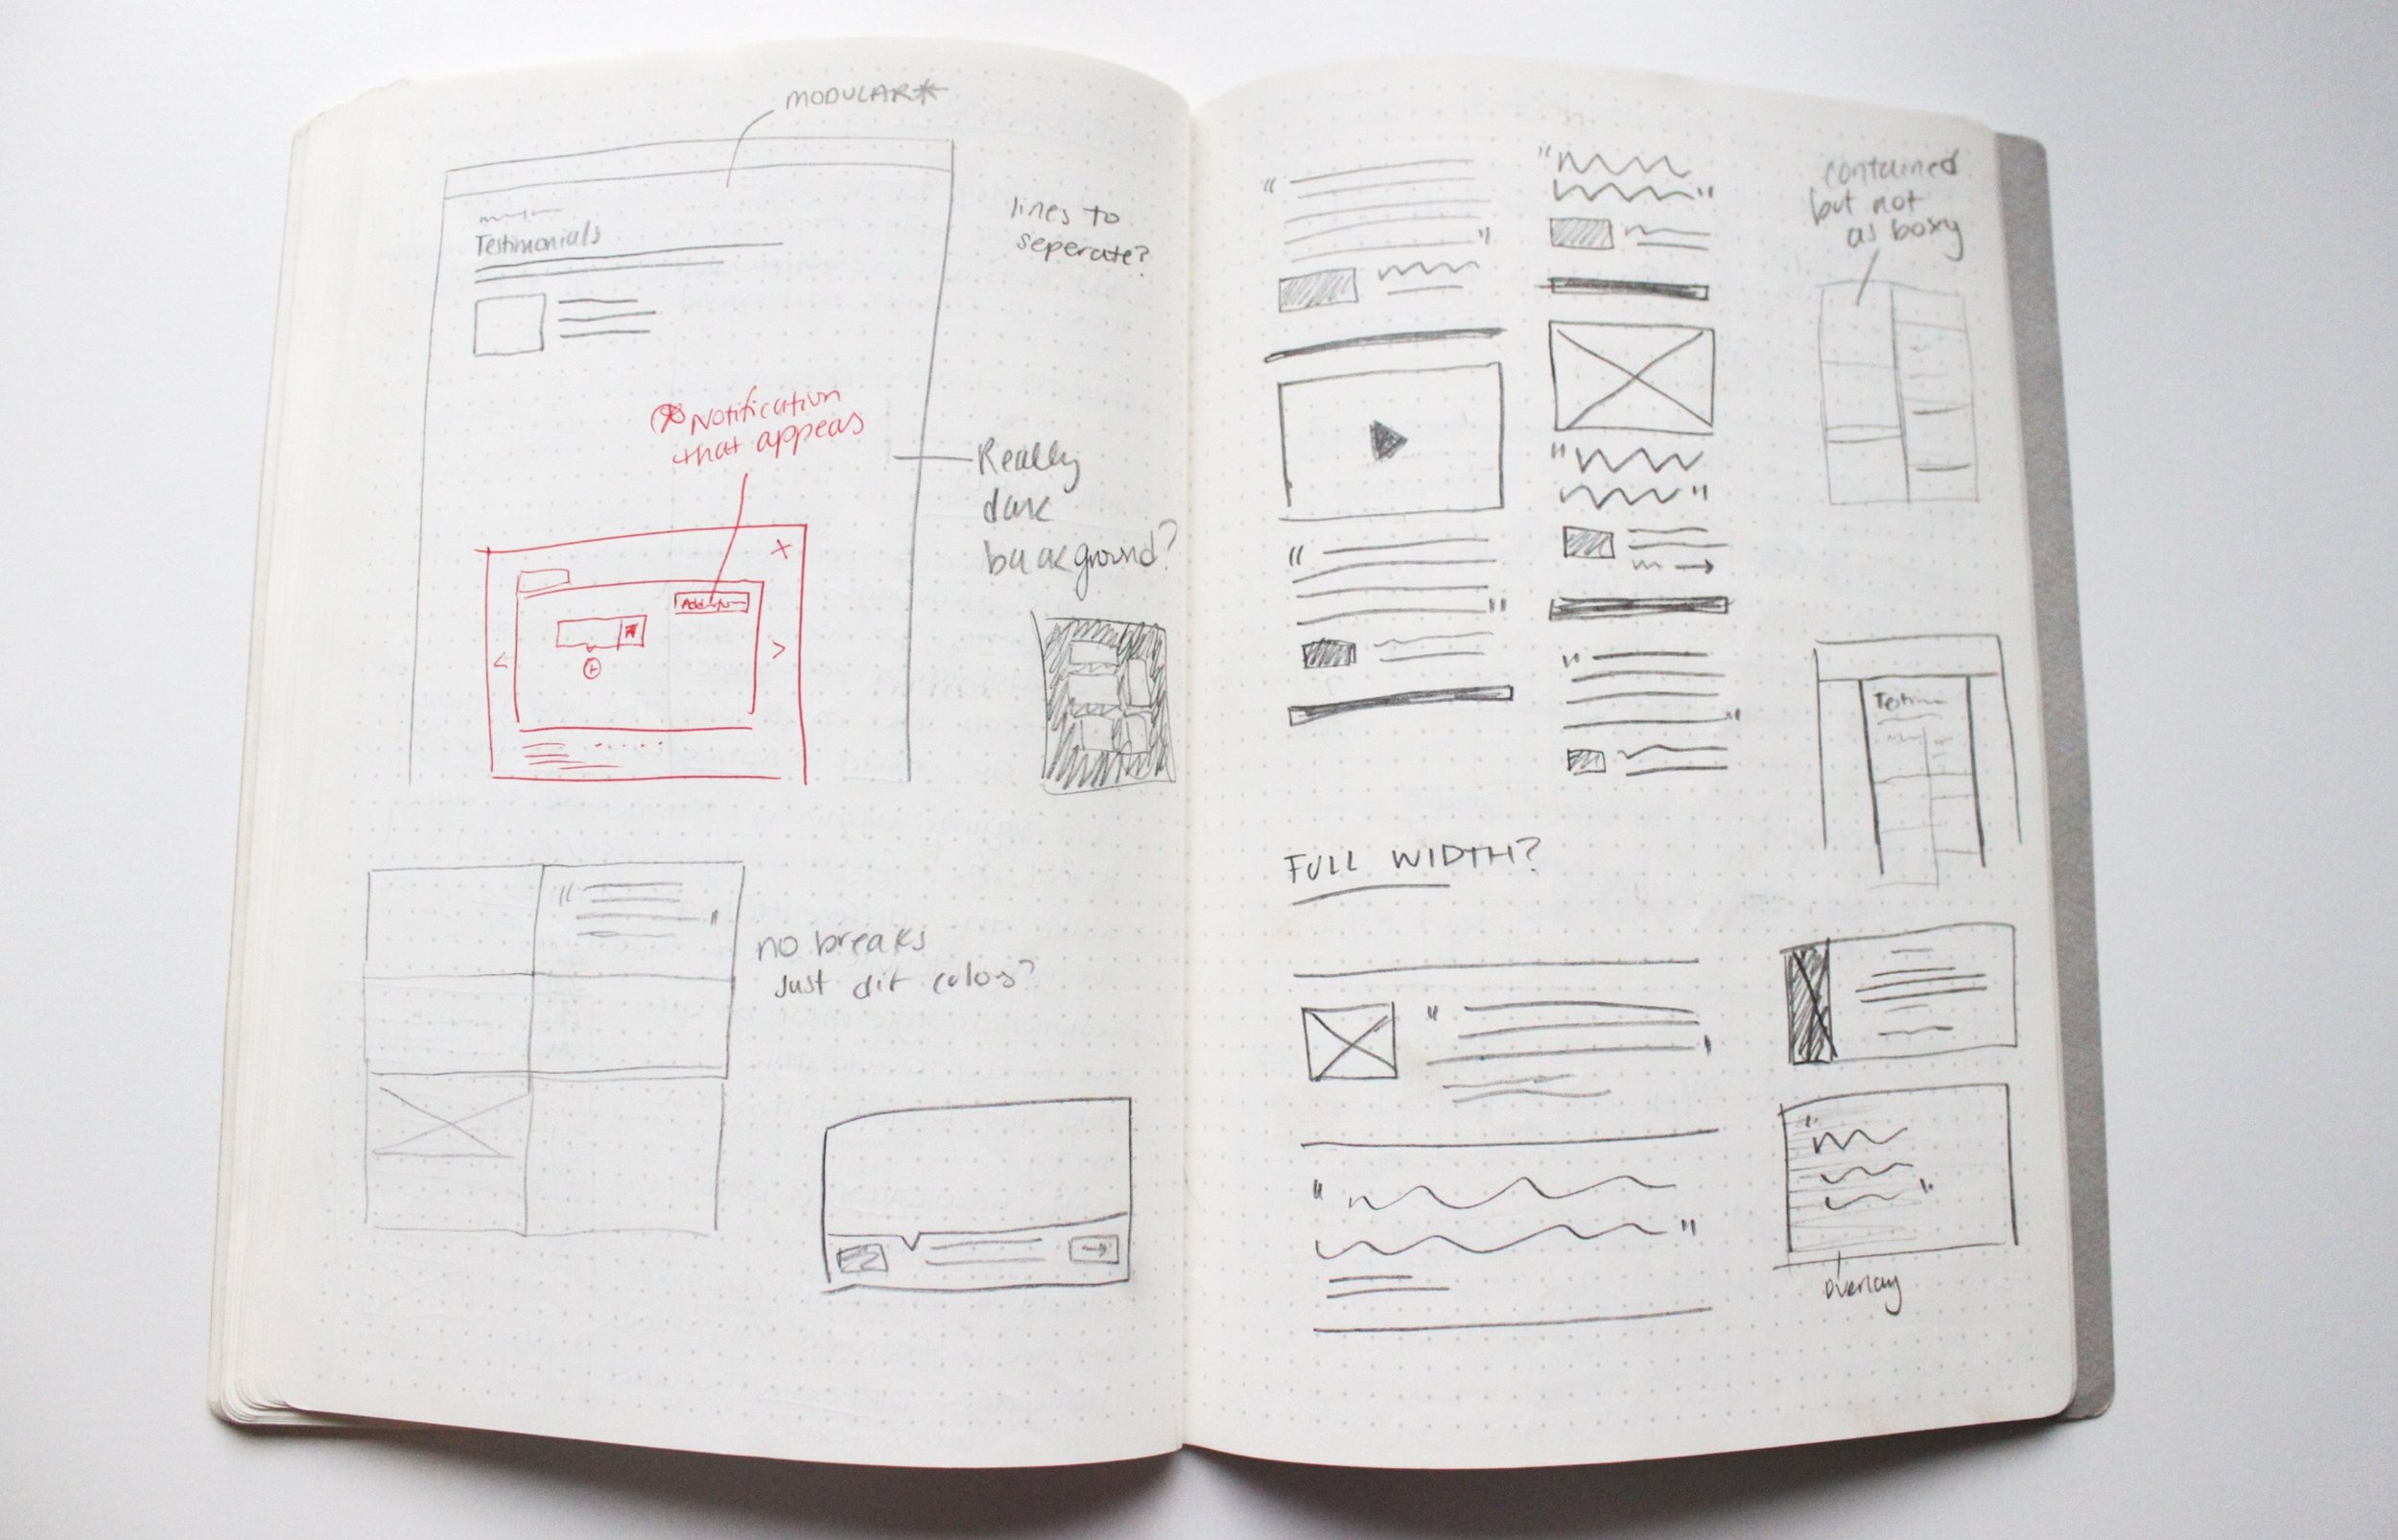 MODULAR*
Testimonials
lines to
seperate?
Notification
that appeas
Really
dark
background?
no breaks
Just dif colos?
contained
but not
as boxy
Testim
FULL WIDTH?
overlay